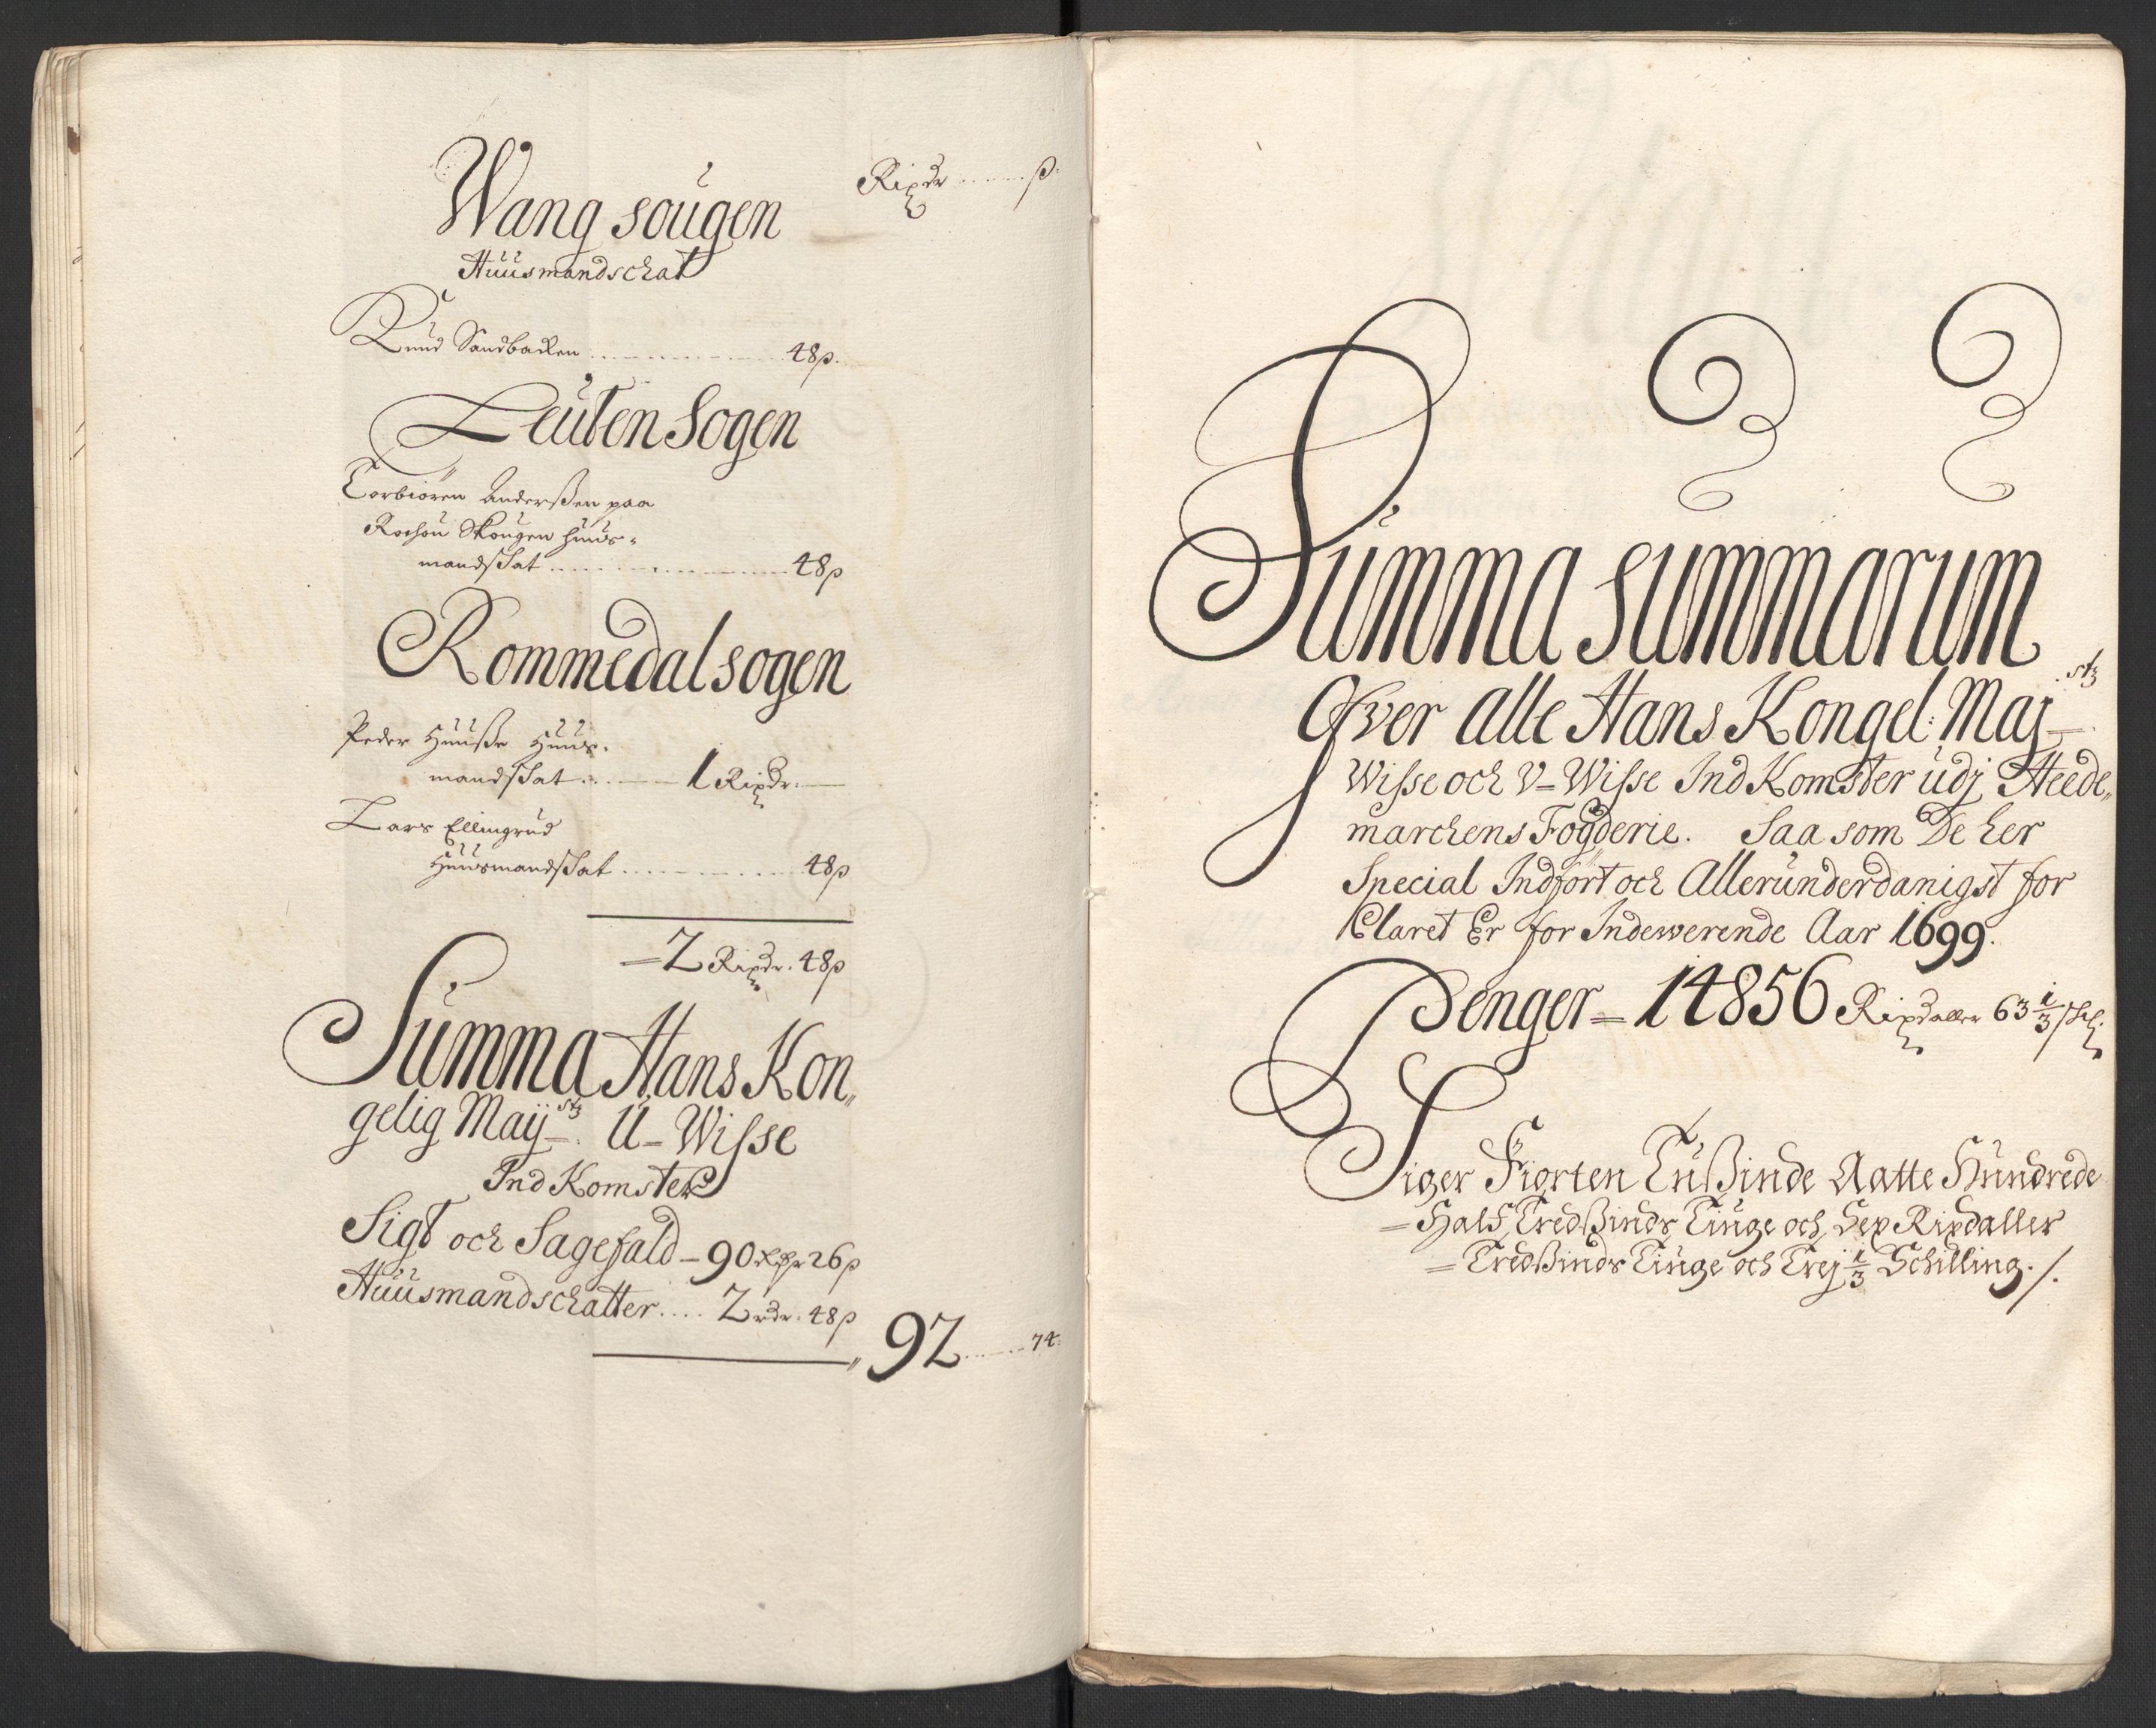 Rixdr ...... ß.
Wang sougen
Huusmandschat
Knud Sandbacken ............ 48ß.
Leuten Sogen
Torbiören Anderßen paa
Skougen huus-
mandskat ............ 48ß
Rommedal sogen
Peder Huuße Huus-
mandskat ...... 1 Rixdr. —
Lars Ellingrud
Huusmandskat ............ 48ß
= 2 Rixdr. 48ß
Summa Hans Kon„
gelig Maijstz U-Wisse
IndKomster
Sigt och Sagefald - 90 rdr 26ß
Huusmandschatter .... 2 rdr. 48ß
„ 92 ...... 74.
Summa summarum
Ofver alle Hans Kongel: Majstz
Wisse och V-Wisse IndKomster udj Heede„
marchens Fogderie. Saa som De her
Special Indfört och Allerunderdanigst for
Claret Er for Indewerende Aar 1699.
Penger = 14856 Rixdaller 63 1/3 skl:
Siger Fiorten Tußinde Aatte Hundrede
= Half Tredßinds Tiuge och Sex Rixdaller
= Tredßinds Tiuge och Trej 1/3 Schilling ./.